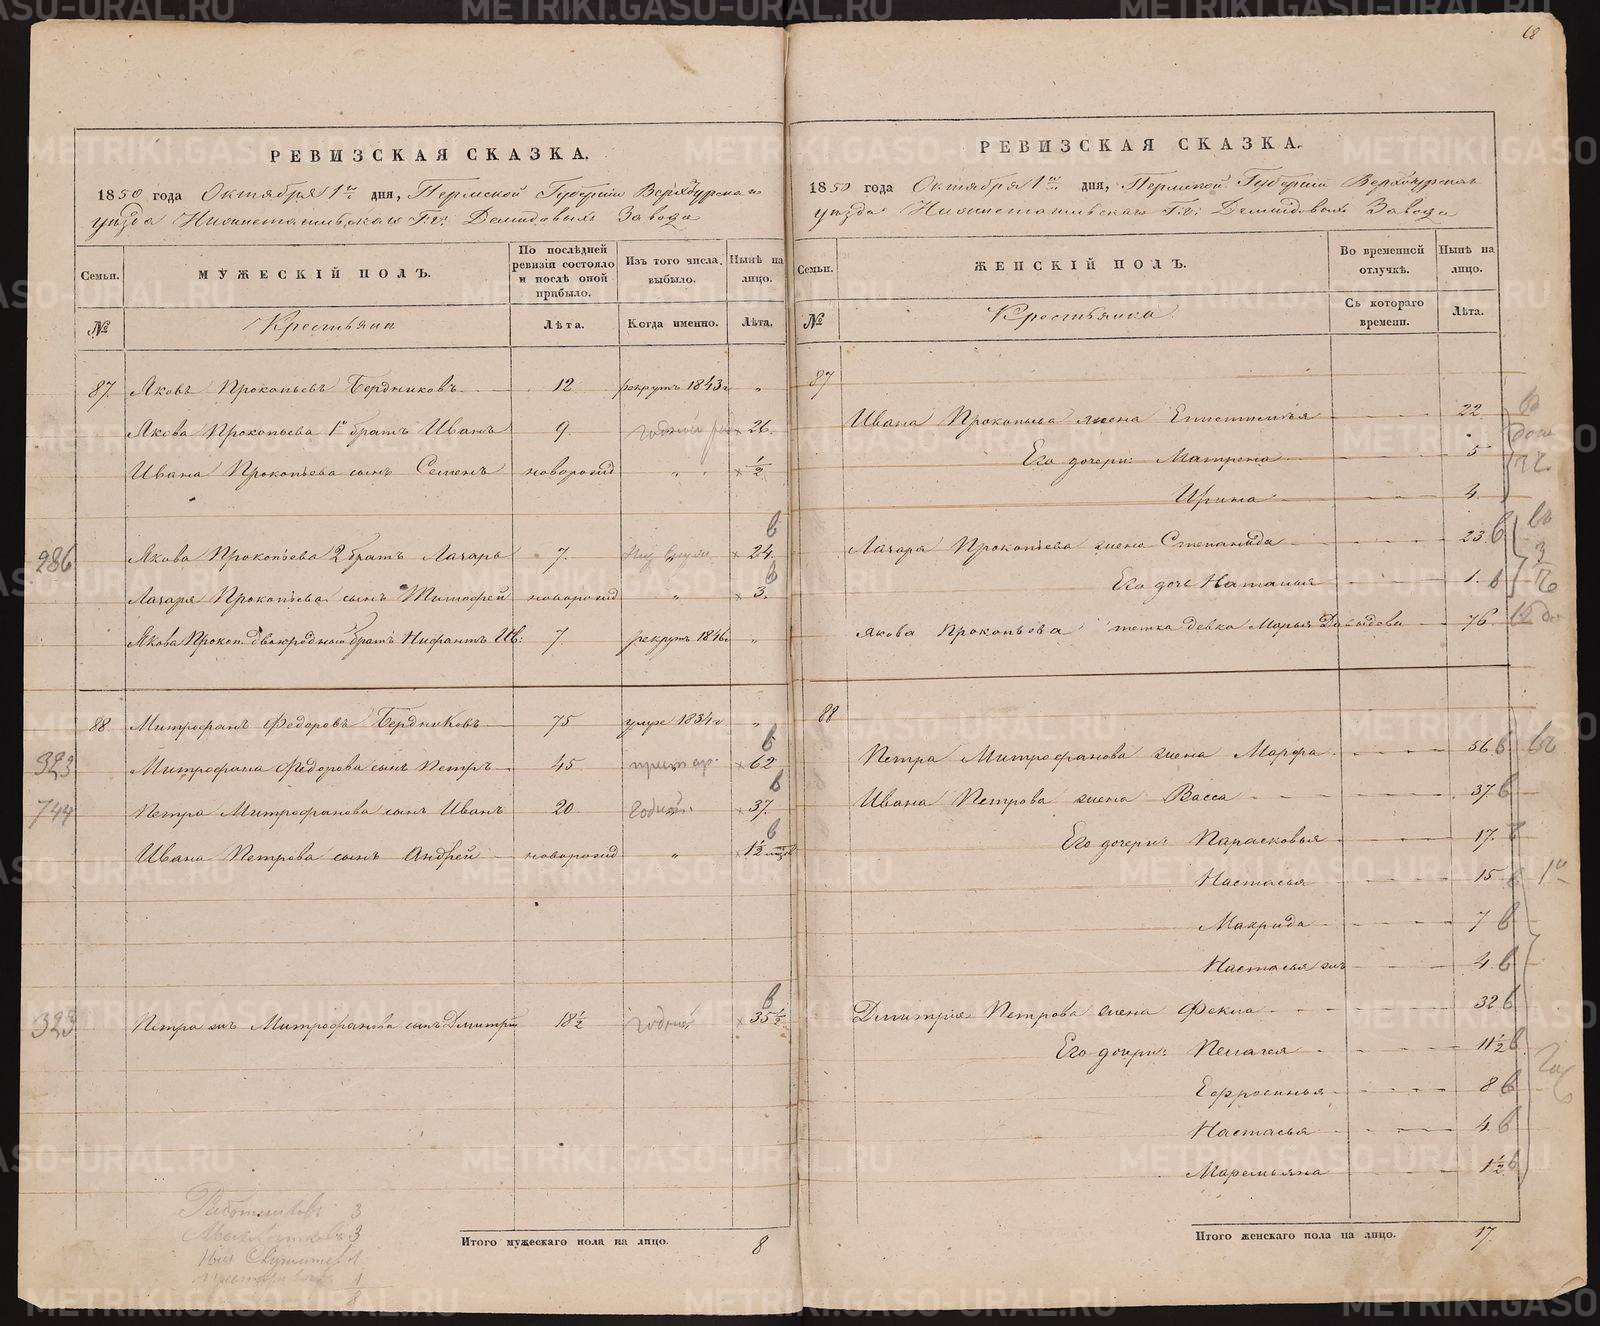 68
РЕВИЗСКАЯ СКАЗКА.
1850 года Октября 1го дня, Пермской Губерніи Верхотурскаго
уѣзда Нижнетагильскаго Г.г: Демидовыхъ Завода
Семьи.
МУЖЕСКІЙ ПОЛЪ.
По послѣдней ревизіи состояло и послѣ оной прибыло.
Изъ того числа выбыло.
Нынѣ на лицо.
№
Крестьянъ
Лѣта.
Когда именно.
Лѣта.
87. Яковъ Прокопьевъ Бердниковъ 12 рекрутъ 1843г "
Якова Прокопьева 1й братъ Иванъ 9. годной × 26.
Ивана Прокопьева сынъ Семенъ новорожд " × ½
286 Якова Прокопьева 2 братъ Лазарь 7. × 24. в
Лазаря Прокопьева сынъ Тимофей новорожд " × 3. в
Якова Прокоп. двоюродной братъ Нифантъ Ив: 7 рекрутъ 1846г "
88. Митрофанъ Федоровъ Бердниковъ 75 умре 1834г "
323 Митрофана Федорова сынъ Петръ 45 престар. × 62 в
744 Петра Митрофанова сынъ Иванъ 20 Годной × 37. в
Ивана Петрова сынъ Андрей новорожд " × 1½ в
323 Петра жъ Митрофанова сынъ Дмитрій 18½ годной × 35½ в
Работниковъ 3
3
1
1
8
Итого мужескаго пола на лицо. 8
РЕВИЗСКАЯ СКАЗКА.
1850 года Октября 1го дня, Пермской Губерніи Верхотурскаго
уѣзда Нижнетагильскаго Г.г: Демидовыхъ Завода
Семьи.
ЖЕНСКІЙ ПОЛЪ.
Во временной отлучкѣ.
Нынѣ на лицо.
№
Крестьянка
Съ котораго времени.
Лѣта.
87
Ивана Прокопьева жена Епистимья 22
Его дочери: Матрена 5
Ирина 4
Лазаря Прокопьева жена Степанида 23. в
Его дочь Наталья 1. в
Якова Прокопьева тетка девка Марья Давыдова 76
88
Петра Митрофанова жена Марфа 56 в
Ивана Петрова жена Васса 37. в
Его дочери: Парасковья 17. в
Настасья 15 в
Макрида 7 в
Настасья жъ 4. в
Дмитрія Петрова жена Фекла 32 в
Его дочери: Пелагея 11½ в
Ефросинья 8 в
Настасья 4. в
Маремьяна 1½ в
Итого женскаго пола на лицо. 17.
METRIKI.GASO-URAL.RU